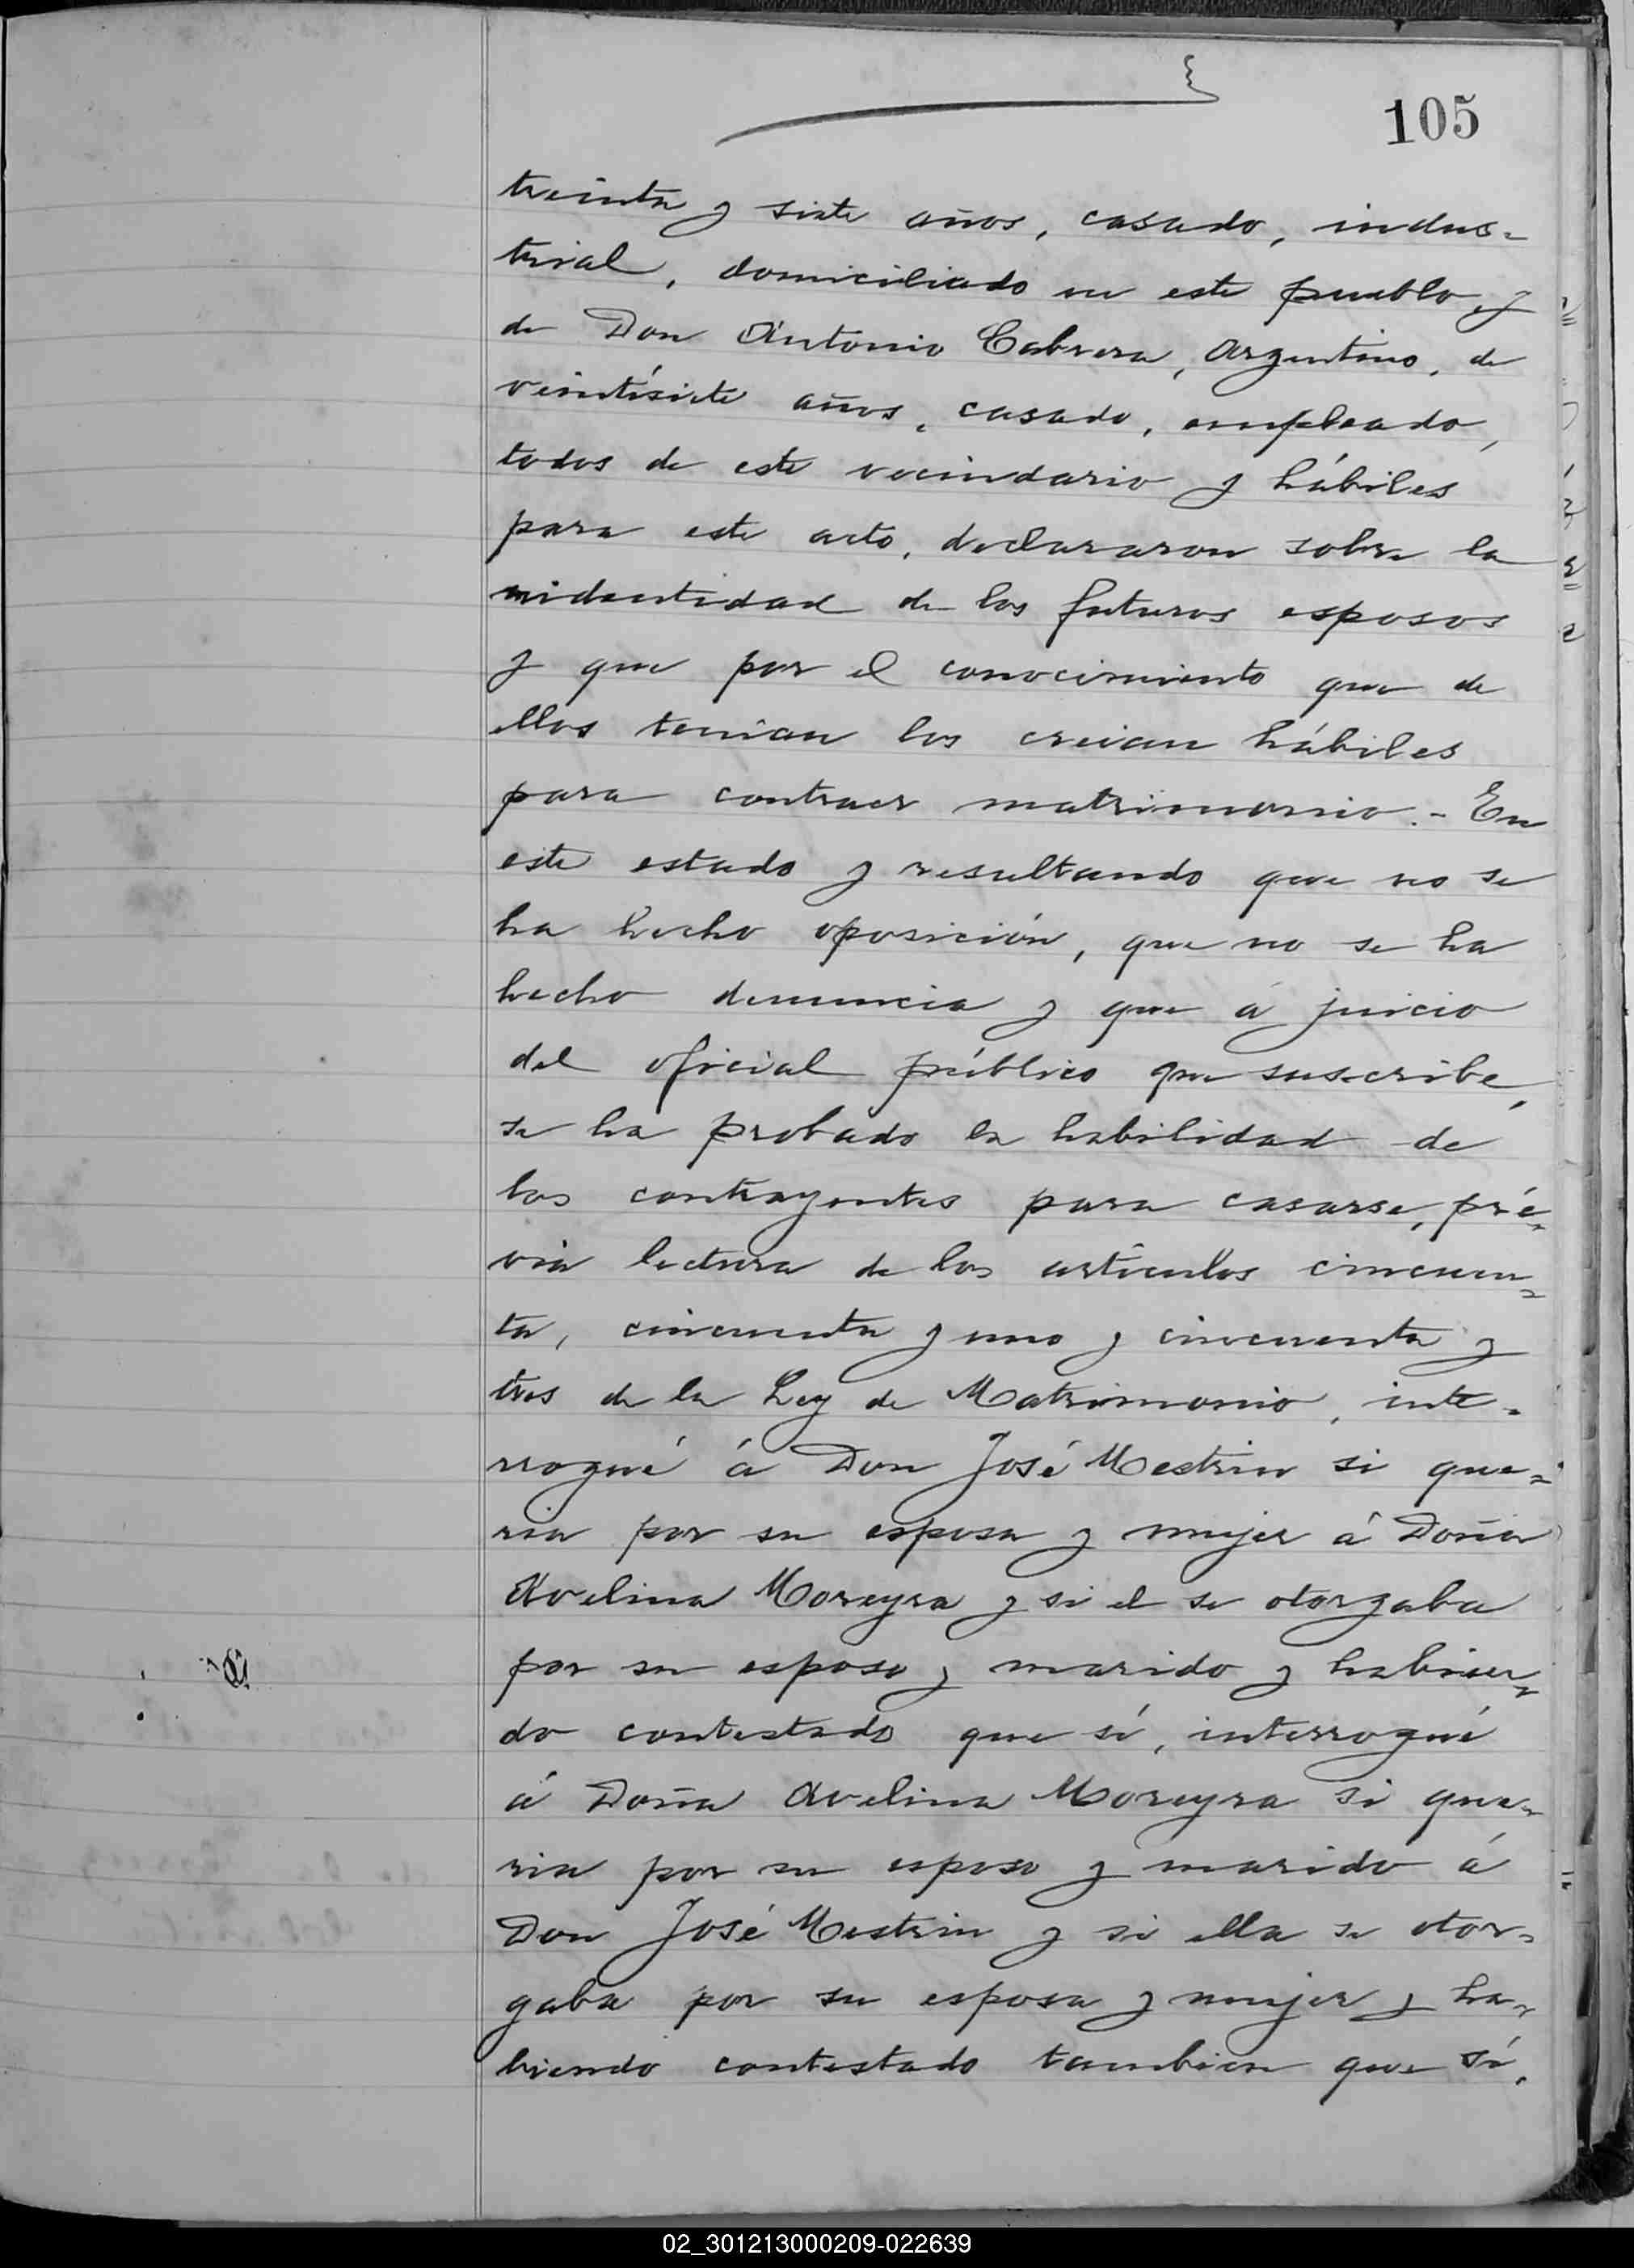 105
treinta y siete años, casado, indus-
trial, domiciliado en este pueblo, y
de Don Antonio Cabrera, Argentino, de
veintisiete años, casado, empleado,
todos de este vecindario y hábiles
para este acto, declararon sobre la
identidad de los futuros esposos
y que por el conocimiento que de
ellos tenian los creian hábiles
para contraer matrimonio.- En
este estado y resultando que no se
ha hecho oposición, que no se ha
hecho denuncia y que á juicio
del oficial público que suscribe,
se ha probado la habilidad de
los contrayentes para casarse, pré-
via lectura de los articulos cincuen-
ta, cincuenta y uno y cincuenta y
tres de la Ley de Matrimonio, inte-
rrogué á Don José Mestrin si que-
ria por su esposa y mujer á Doña
Avelina Moreyra y si el se otorgaba
por su esposo y marido y habien-
do contestado que sí, interrogué
á Doña Avelina Moreyra si que-
ria por su esposo y marido á
Don José Mestrin y si ella se otor-
gaba por su esposa y mujer y ha-
biendo contestado tambien que sí,
02_301213000209-022639